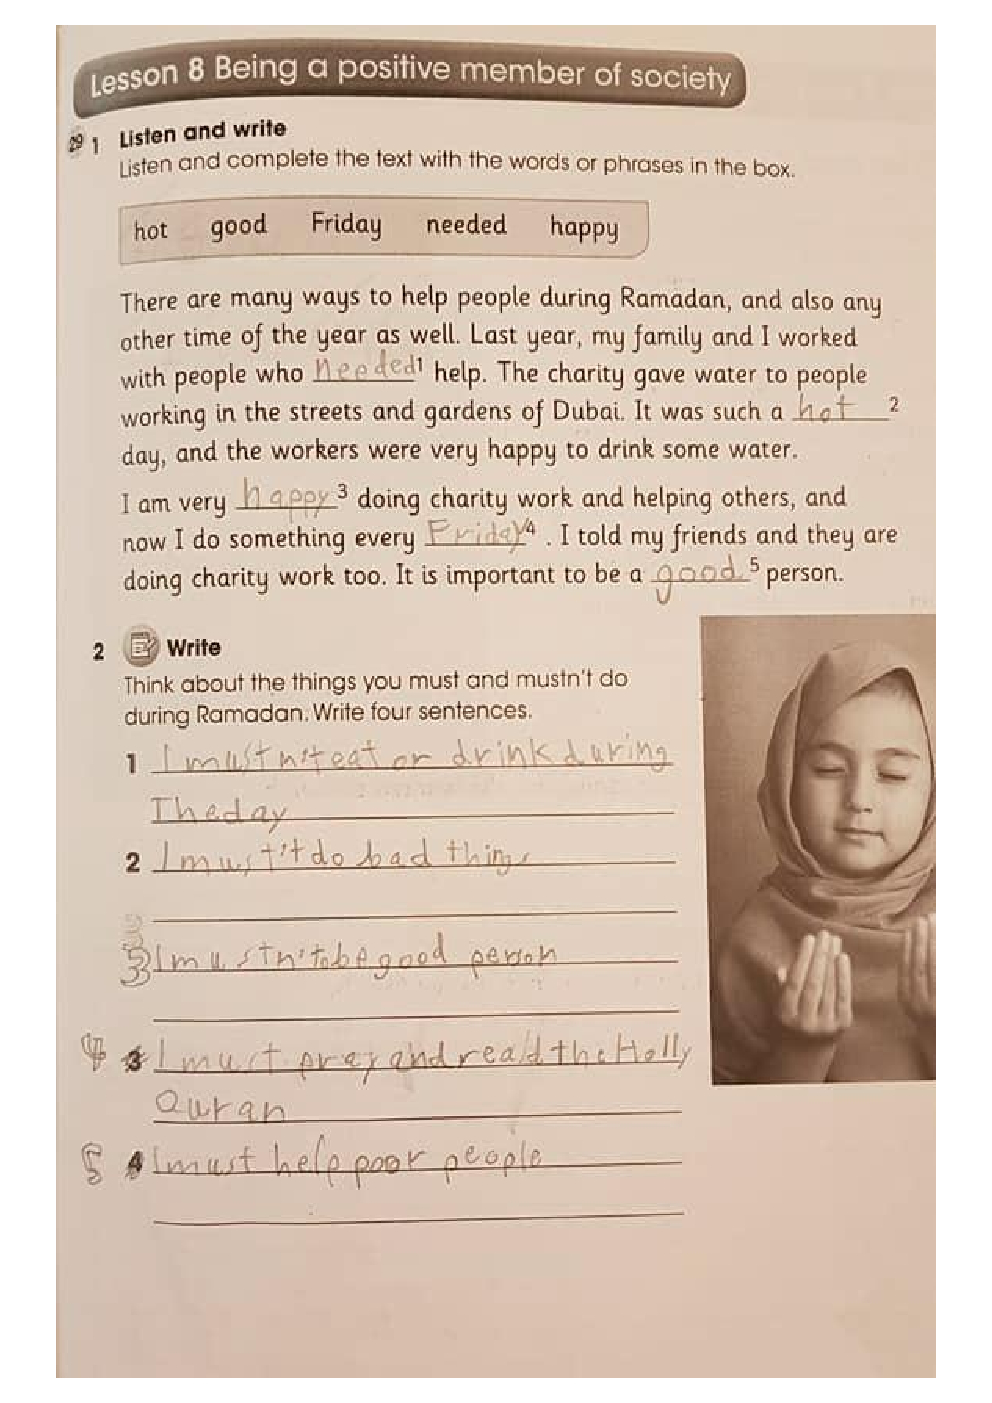 Lesson 8 Being a positive member of society
29 1 Listen and write
Listen and complete the text with the words or phrases in the box.
hot good Friday needed happy
There are many ways to help people during Ramadan, and also any
other time of the year as well. Last year, my family and I worked
with people who needed 1 help. The charity gave water to people
working in the streets and gardens of Dubai. It was such a hot 2
day, and the workers were very happy to drink some water.
I am very happy 3 doing charity work and helping others, and
now I do something every Friday 4 . I told my friends and they are
doing charity work too. It is important to be a good 5 person.
2 Write
Think about the things you must and mustn't do
during Ramadan. Write four sentences.
1 I mustn't eat or drink during
The day
2 I must't do bad things
3 I mustn't to be good person
4 3 I must pray and read the Holly
Quran
5 4 I must help poor people